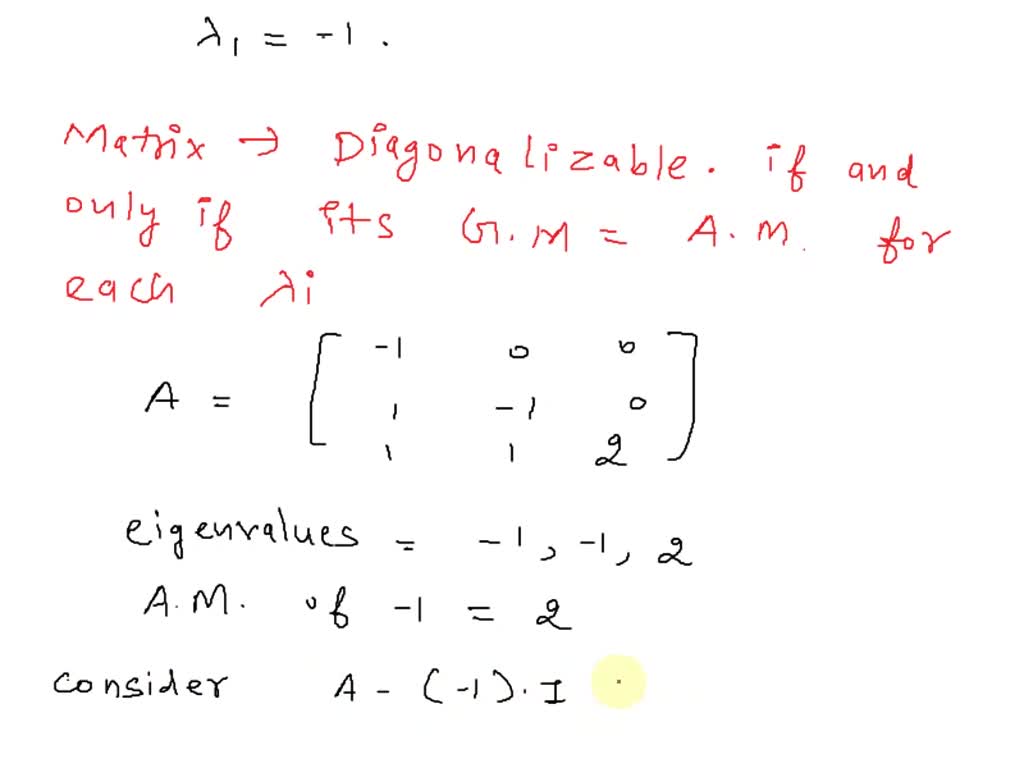 λ₁ = -1 .
Matrix → Diagonalizable. if and
only if its G.M = A.M. for
each λi
-1 0 0
A = 1 -1 0
1 1 2
eigenvalues = -1, -1, 2
A.M. of -1 = 2
consider A - (-1).I